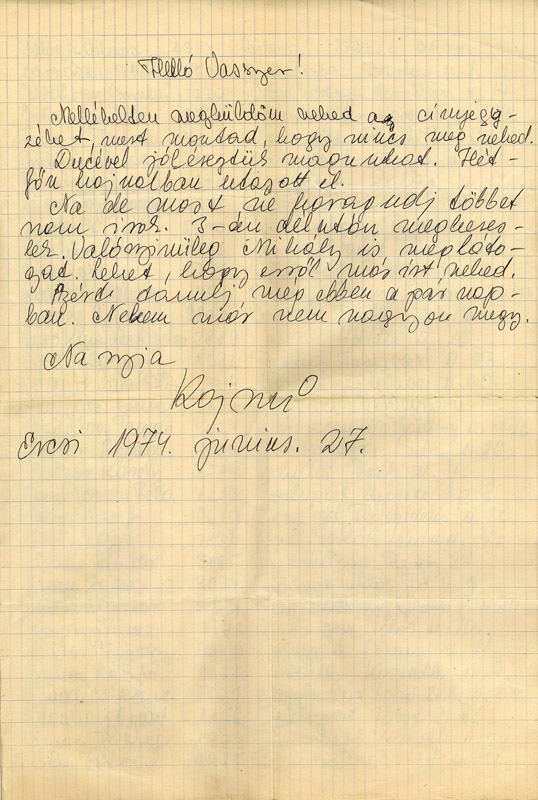 Helló Vasszer!
Mellékelten megküldöm neked a címjegy-
zéket, mert montad, hogy nincs meg neked.
Ducével jól éreztük magunkat. Hét-
főn hajnalban utazott el.
Na de most ne haragudj többet
nem irok. 3-án délután megkeres-
lek. Valószinüleg Mihály is megláto-
gat. Lehet, hogy erről már irt neked.
Azért tanulj még ebben a pár nap-
ban. Nekem már nem nagyon megy.
Na szia
Ercsi 1974. junius. 27.